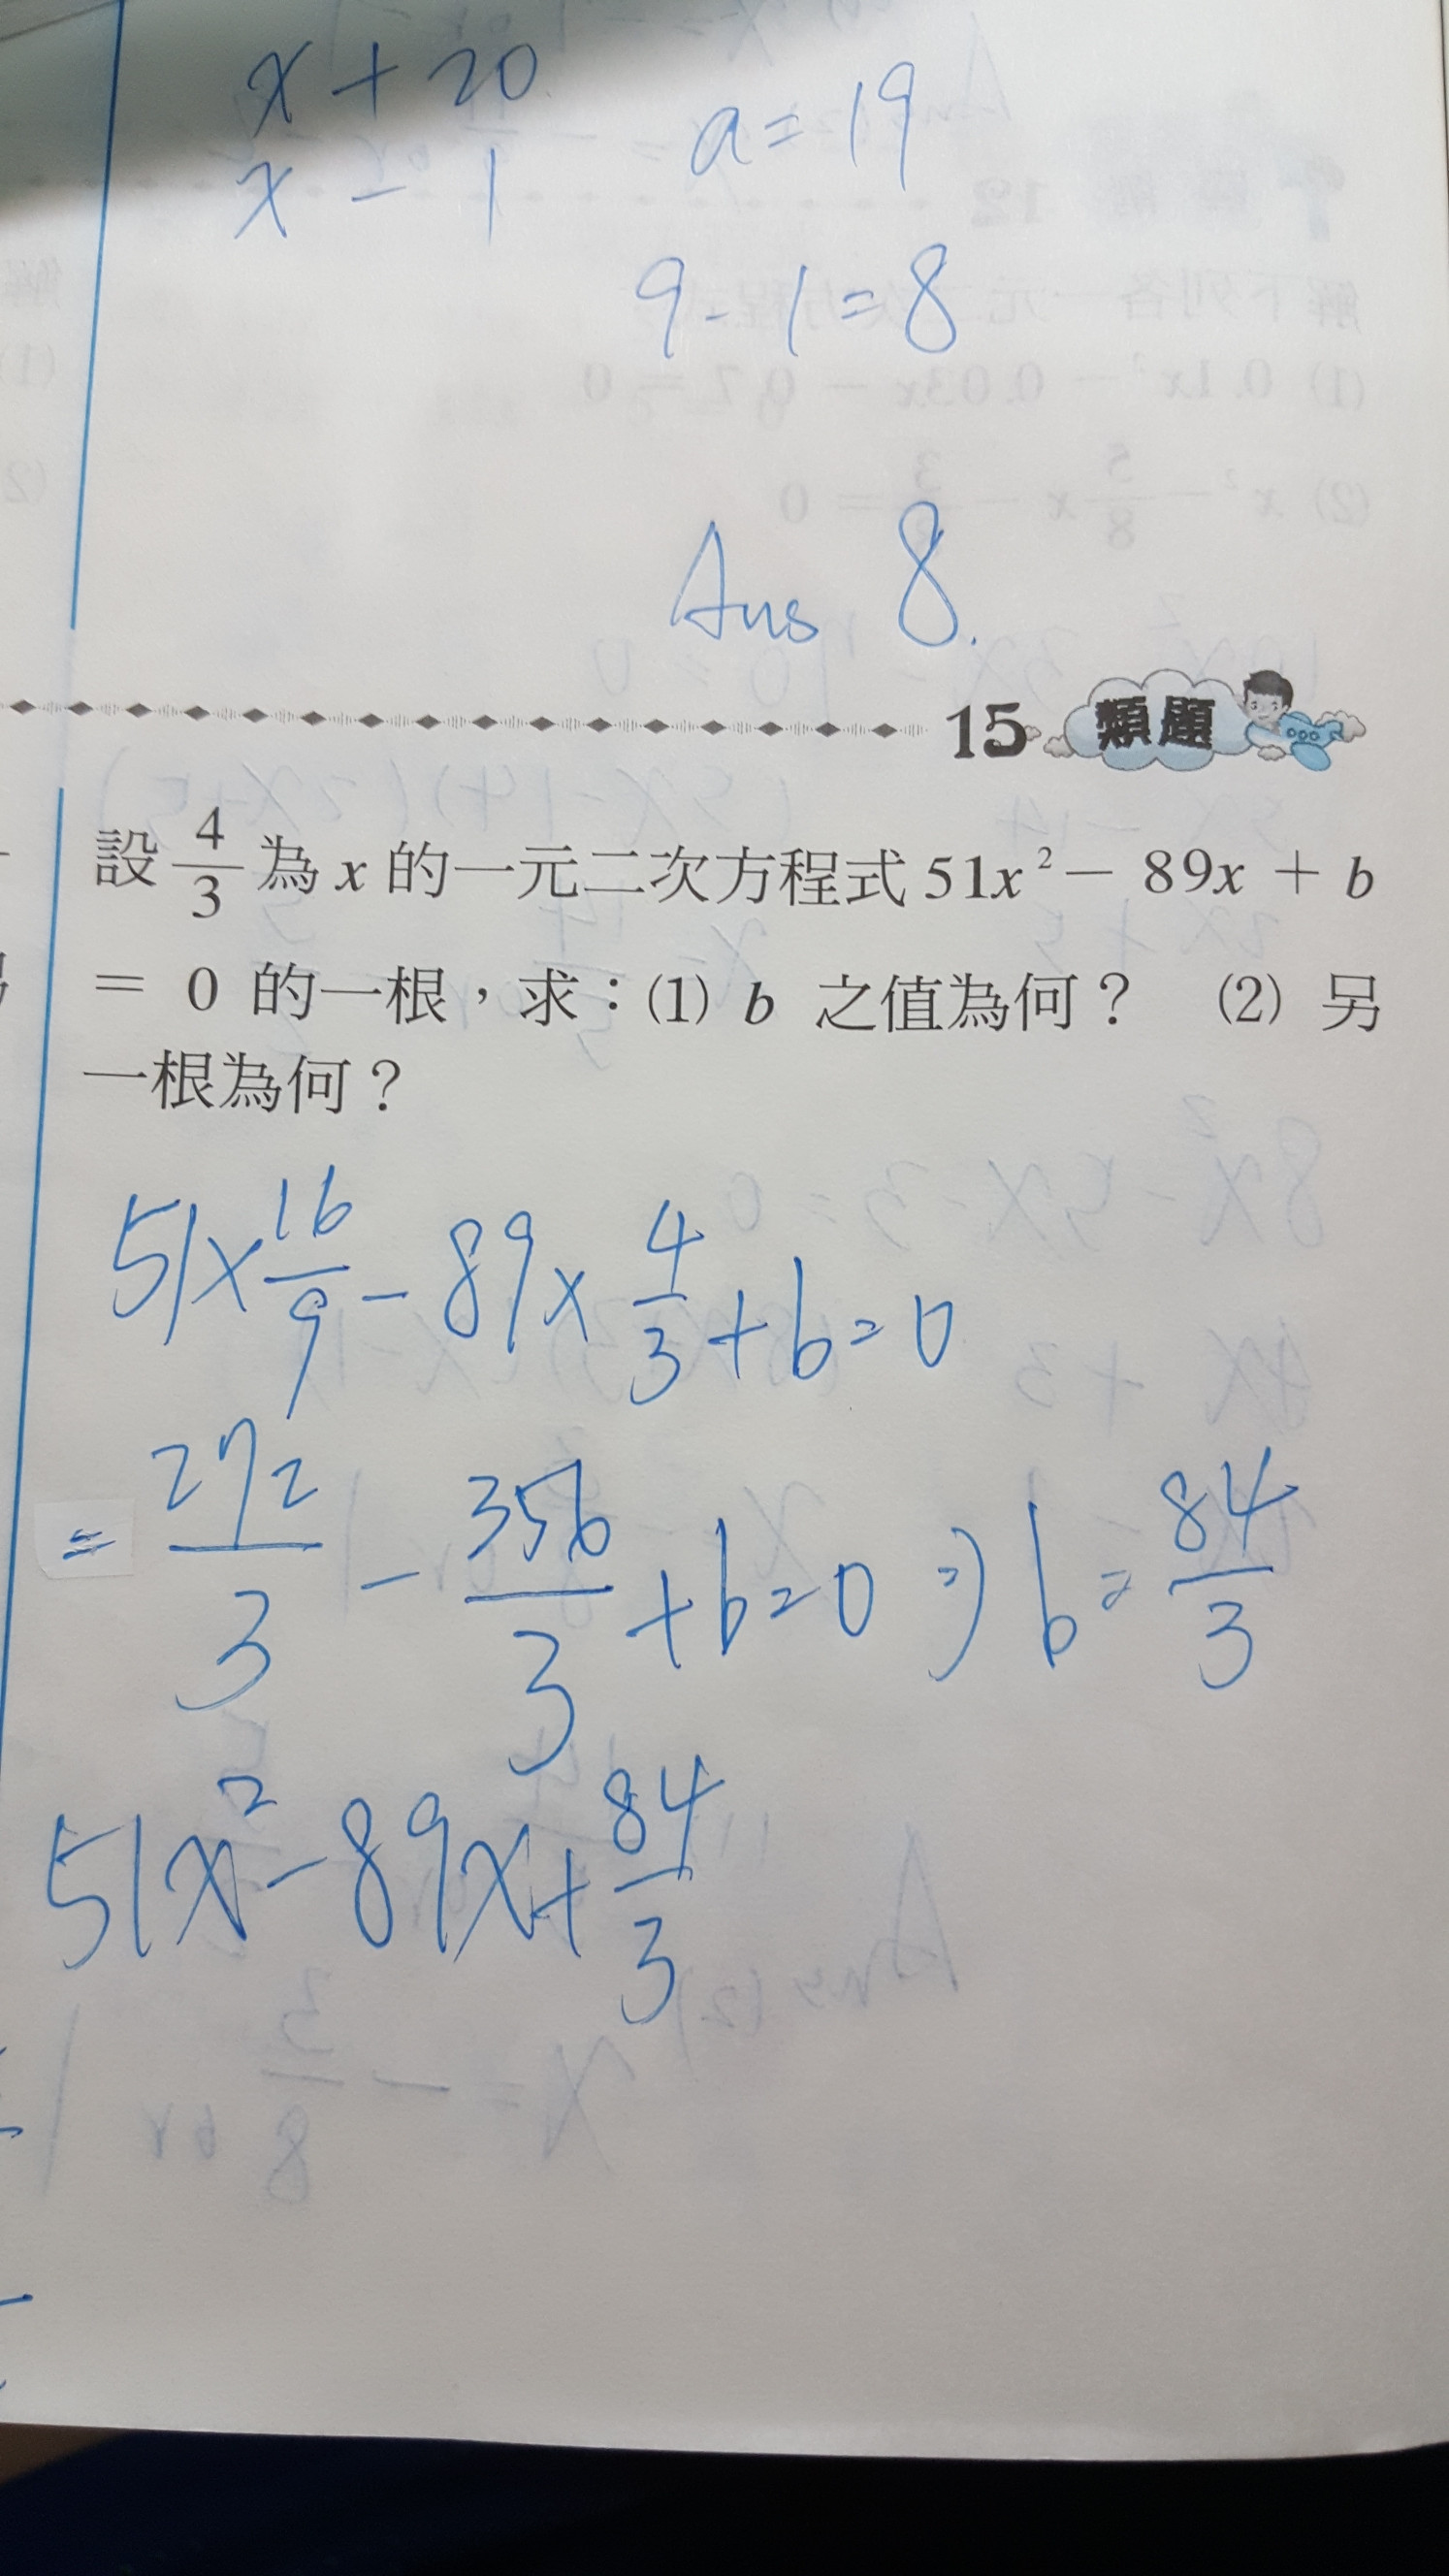 x + 20
x - 1
a = 19
9 - 1 = 8
Ans 8.
15 類題
設 4/3 為 x 的一元二次方程式 51x² － 89x ＋ b
＝ 0 的一根，求：(1) b 之值為何？ (2) 另
一根為何？
51×16/9 - 89×4/3 + b = 0
= 272/3 - 356/3 + b = 0 ⇒ b = 84/3
51x² - 89x + 84/3